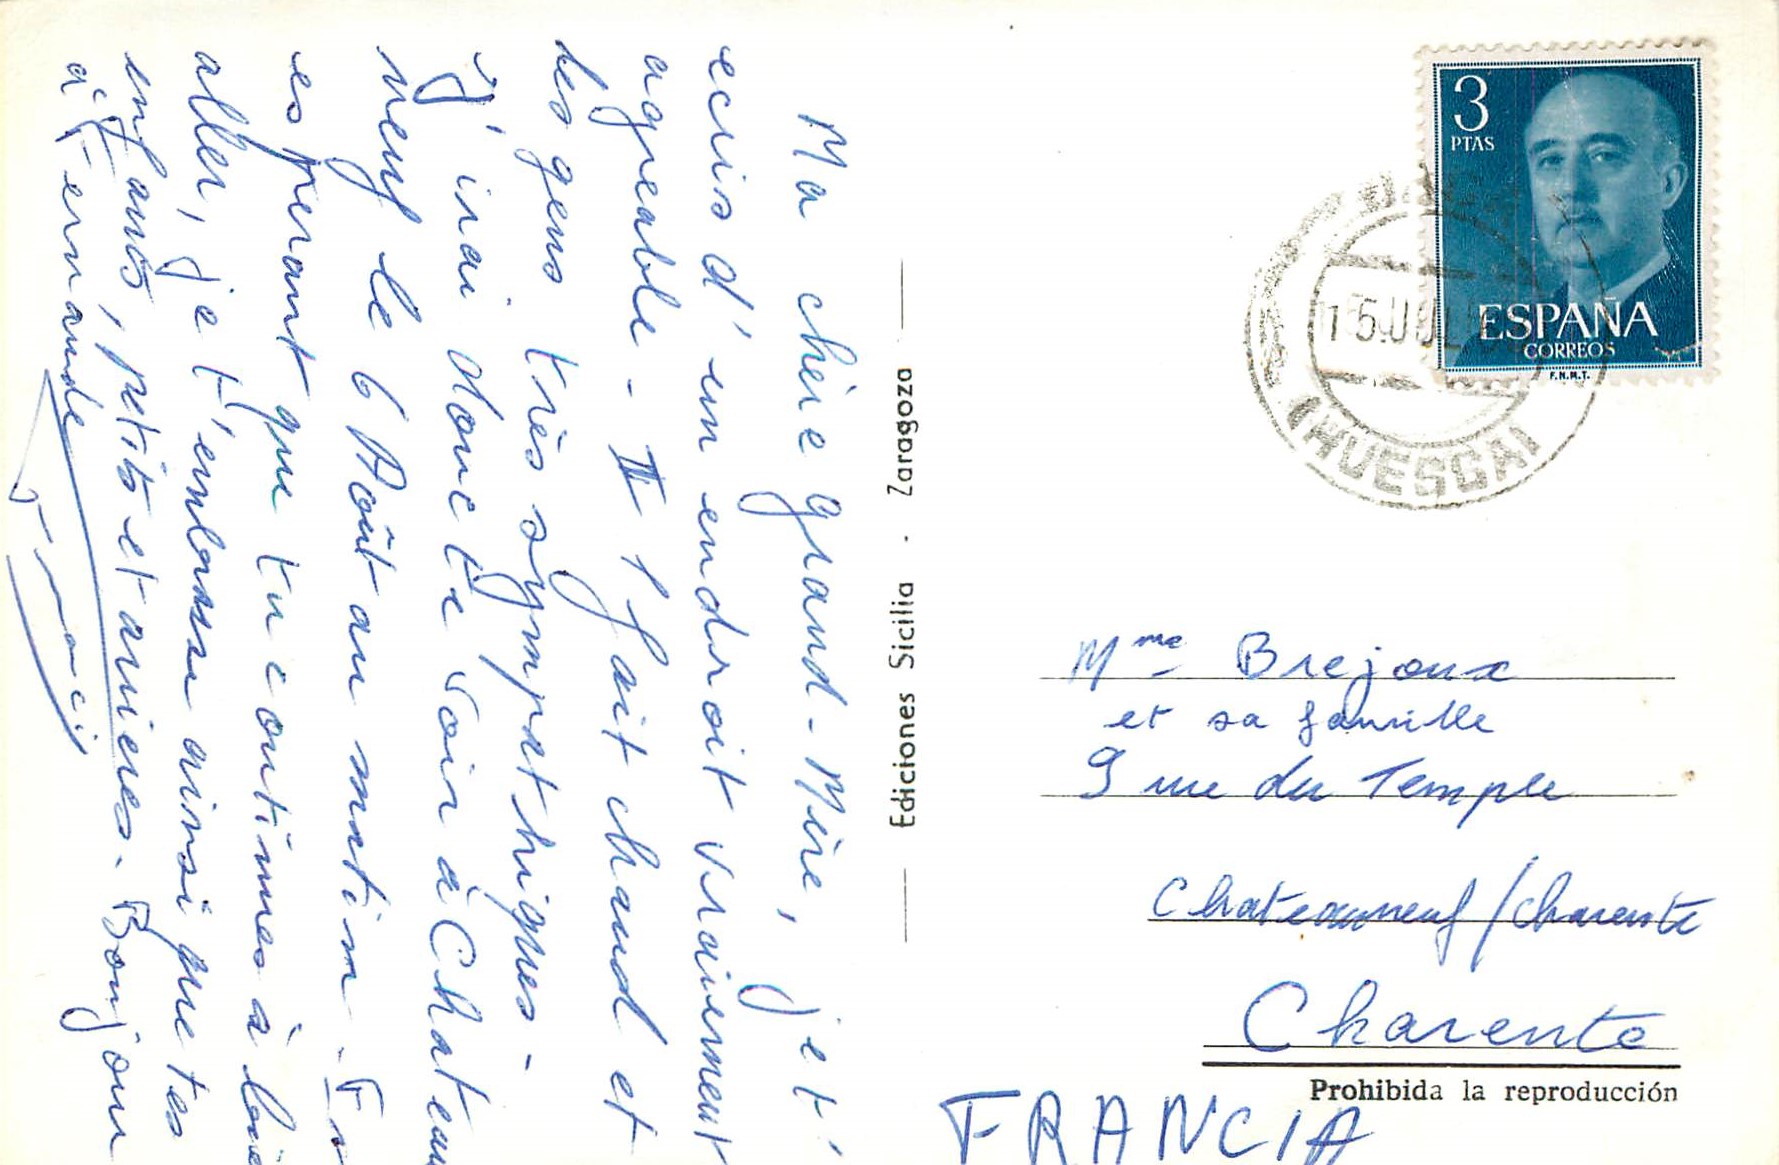 Ma chère grand-Mère, je t'
ecris d'un endroit vraiement
agreable - Il fait chaud et
les gens très sympathiques -
J'irai donc te voir à Chateau
neuf le 6 Août au matin - En
esperant que tu continues à bien
aller, je t'embrasse ainsi que tes
enfants, petits et arrieres. Bonjour
à Fernande
Francis
Ediciones Sicilia - Zaragoza
3
PTAS
ESPAÑA
CORREOS
F.N.M.T.
15 JUL
(HUESCA)
Mme Brejoux
et sa famille
9 rue du Temple
Chateauneuf/Charente
Charente
Prohibida la reproducción
FRANCIA